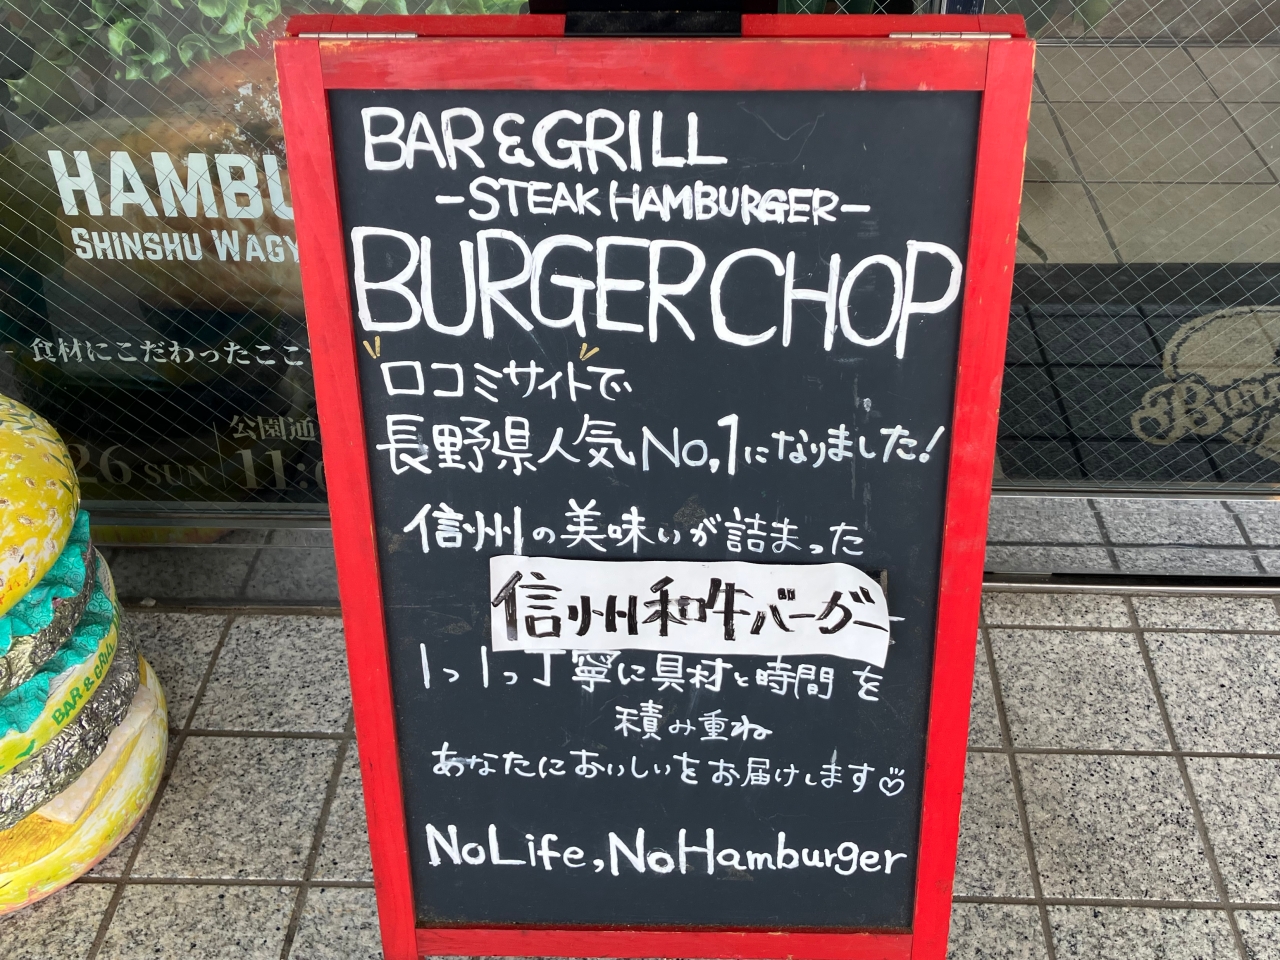 BAR & GRILL
-STEAK HAMBURGER-
BURGER CHOP
口コミサイトで
長野県人気No,1になりました!
信州の美味いが詰まった
信州和牛バーガー
1つ1つ丁寧に具材と時間を
積み重ね
あなたにおいしいをお届けします♡
No Life, No Hamburger
HAMBU
SHINSHU WAGY
食材にこだわったここ
公園通
26 SUN 11:
BAR & GRILL